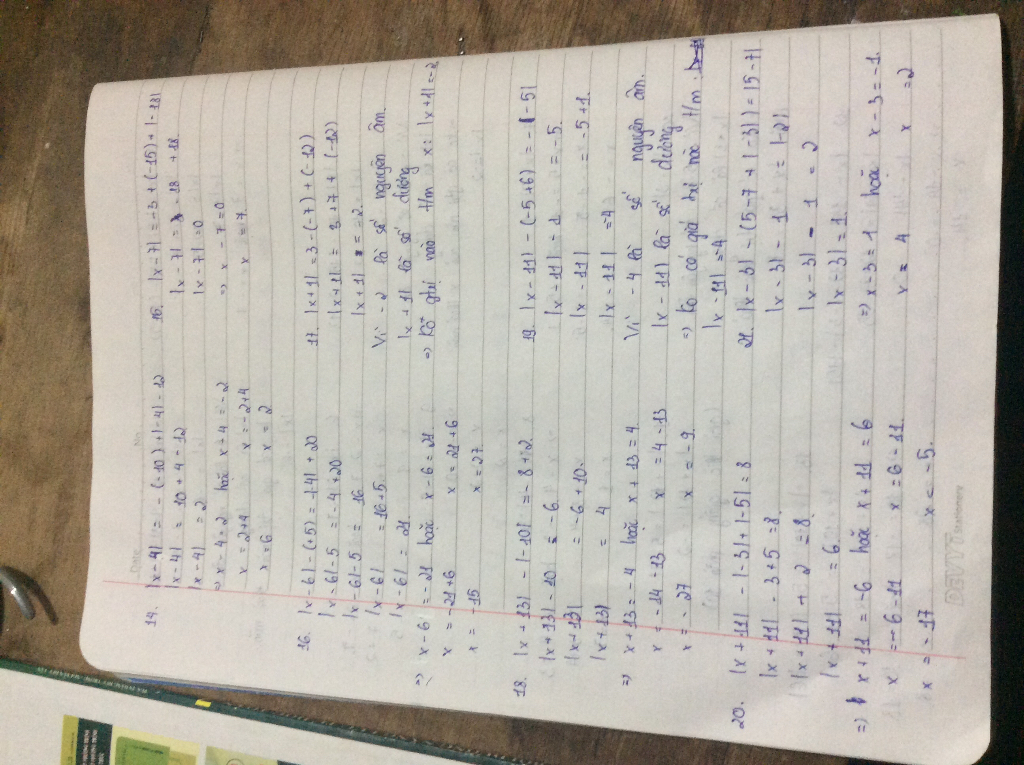 14. |x - 4| = - (-10) + |-4| - 12
|x - 4| = 10 + 4 - 12
|x - 4| = 2
⇒ x - 4 = 2 hoặc x - 4 = -2
x = 2+4 x = -2+4
x = 6 x = 2
15. |x - 7| = -3 + (-15) + |-18|
|x - 7| = -18 + 18
|x - 7| = 0
⇒ x - 7 = 0
x = 7
16. |x - 6| - (+5) = -|-4| + 20
|x - 6| - 5 = -4 + 20
|x - 6| - 5 = 16
|x - 6| = 16+5
|x - 6| = 21
⇒ x - 6 = -21 hoặc x - 6 = 21
x = -21+6 x = 21+6
x = -15 x = 27
17. |x+1| = 3 - (-7) + (-12)
|x+1| = 3 + 7 + (-12)
|x+1| = -2
Vì -2 là số nguyên âm.
|x+1| là số dương
⇒ Kô ghị nào t/m x: |x+1| = -2
18. |x + 13| - |-10| = -8 + 2
|x + 13| - 10 = -6
|x + 13| = -6 + 10
|x + 13| = 4
⇒ x + 13 = -4 hoặc x + 13 = 4
x = -14 - 13 x = 4 - 13
x = -27 x = -9
19. |x - 11| - (-5+6) = -|-5|
|x - 11| - 1 = -5
|x - 11| = -5 + 1
|x - 11| = -4
Vì -4 là số nguyên âm.
|x - 11| là số dương
⇒ Kô có giá trị nào t/m
|x - 11| = -4
20. |x + 11| - |-3| + |-5| = 8
|x + 11| - 3 + 5 = 8
|x + 11| + 2 = 8
|x + 11| = 6
⇒ x + 11 = -6 hoặc x + 11 = 6
x = -6 - 11 x = 6 - 11
x = -17 x = -5
21. |x - 3| - (5 - 7 + |-3|) = |5 - 7|
|x - 3| - 1 = |-2|
|x - 3| - 1 = 2
|x - 3| = 1
⇒ x - 3 = 1 hoặc x - 3 = -1
x = 4 x = 2